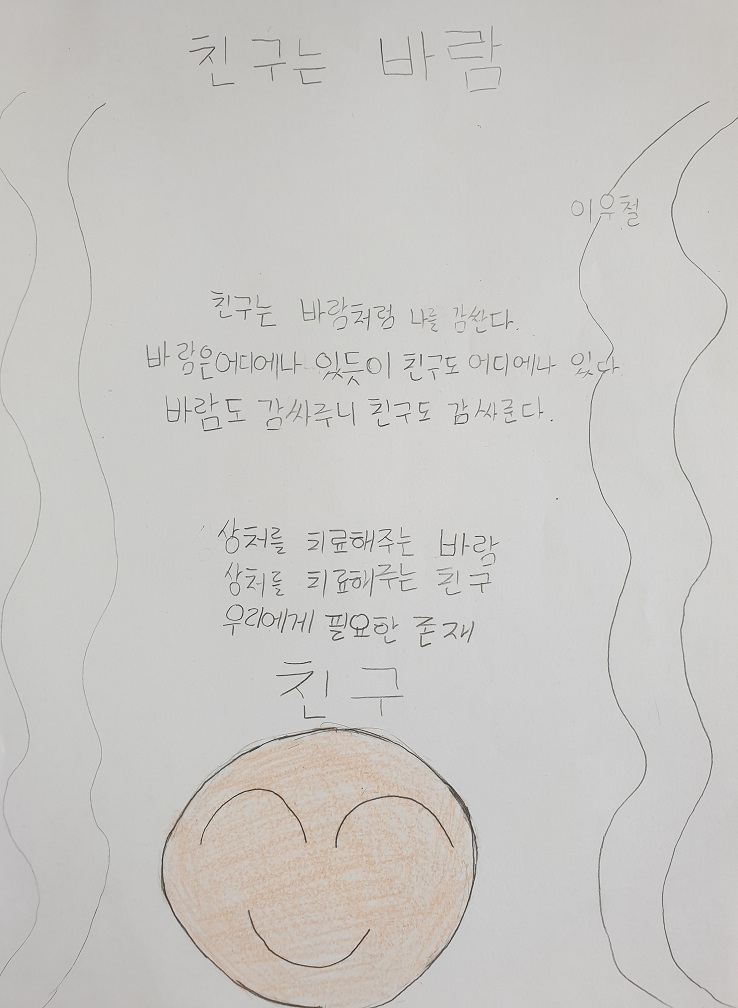 친구는 바람
이우철
친구는 바람처럼 나를 감싼다.
바람은어디에나 있듯이 친구도 어디에나 있다
바람도 감싸주니 친구도 감싸준다.
상처를 치료해주는 바람
상처를 치료해주는 친구
우리에게 필요한 존재
친구